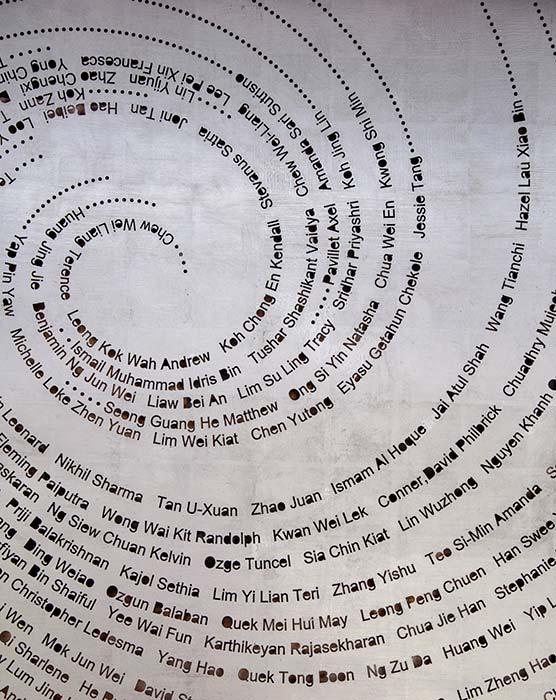 Chew Wei Liang Terence
Leong Kok Wah Andrew Koh Chong En Kendall Stevanus Satria Joni Tan Hao Beibei Loo
Huang Jing Jie
Ismail Muhammad Idris Bin Tushar Shashikant Vaidya Chew Wei-Liang Koh Zann
Yap Pin Yaw
Benjamin Ng Jun Wei Liaw Bei An Lim Su Ling Tracy Pavillet Axel Amanda Sari Sutrisno Lin Yijuan Zhao Chengxi
Seong Guang He Matthew Ong Si Yin Natasha Sridhar Priyashri Koh Jing Lin Lee Pei Xin Francesca Yong
Michelle Loke Zhen Yuan Lim Wei Kiat Chen Yutong Eyasu Getahun Chekole Chua Wei En Kwong Shi Min
Jessie Tang
Leonard Nikhil Sharma Tan U-Xuan Zhao Juan Ismam Al Hoque Jai Atul Shah Wang Tianchi Hazel Lau Xiao Bin
Fleming Palputra Wong Wai Kit Randolph Kwan Wei Lek Conner,David Philbrick Chuadhry
Ng Siew Chuan Kelvin Ozge Tuncel Sia Chin Kiat Lin Wuzhong Nguyen Khanh
Priji Balakrishnan Kajol Sethia Lim Yi Lian Teri Zhang Yishu Teo Si-Min Amanda
Ding Weiao Ozgun Balaban Quek Mei Hui May Leong Peng Chuen Han
Bin Shaiful Yee Wai Fun Karthikeyan Rajasekharan Chua Jie Han Stephanie
Christopher Ledesma Yang Hao Quek Tong Boon Ng Zu Da Huang Wei Yip
Wen Mok Jun Wei David Lim Zheng
Sharlene He
Lum Jing